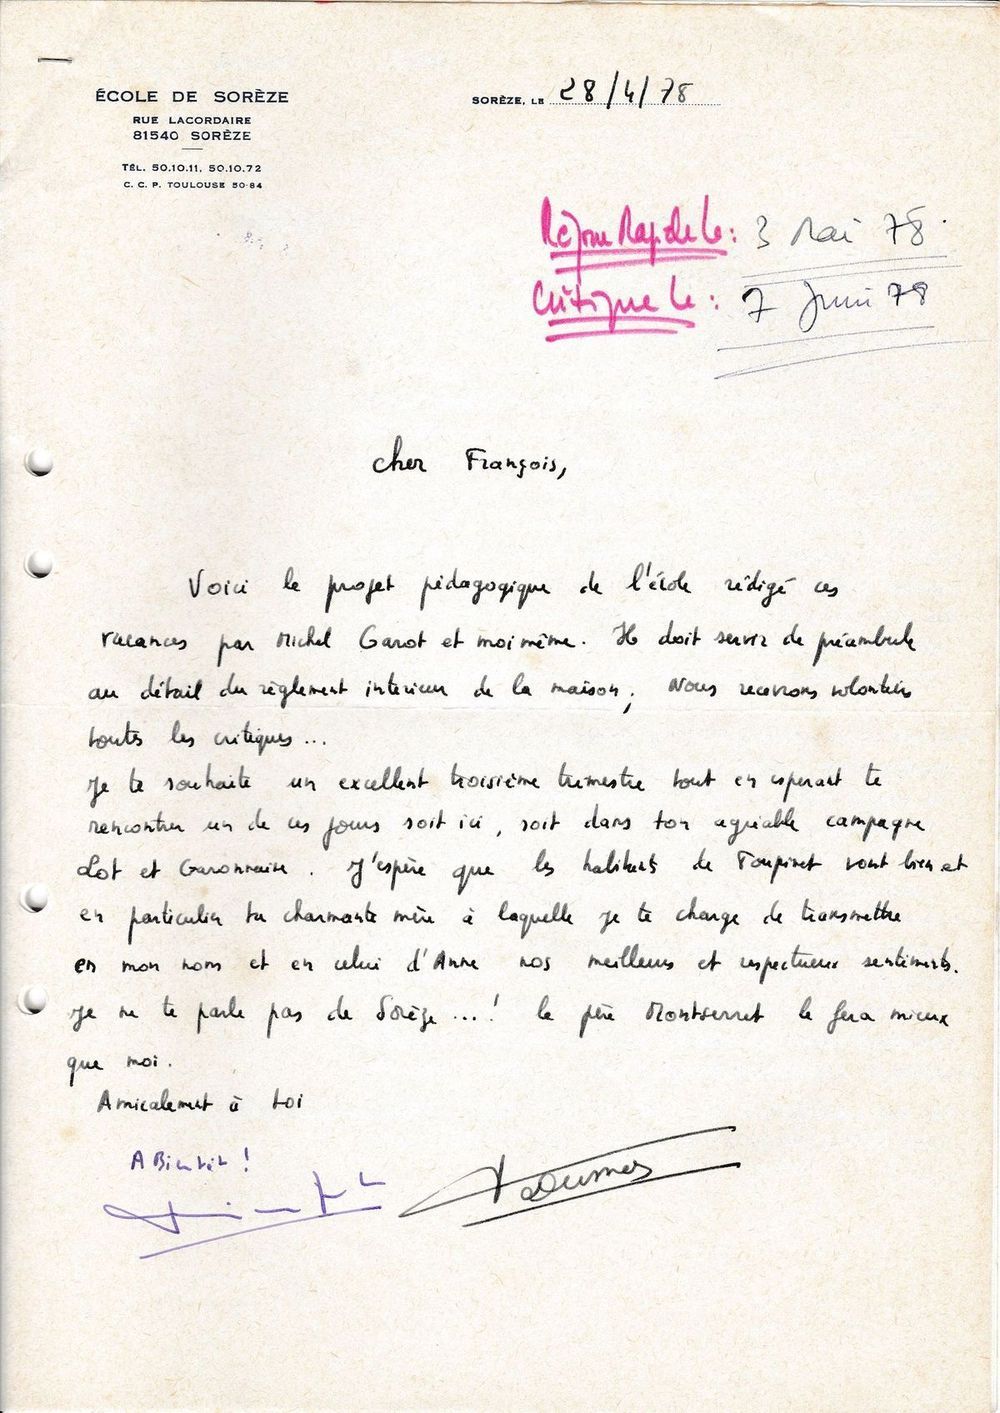 ÉCOLE DE SORÈZE
RUE LACORDAIRE
81540 SORÈZE
TÉL. 50.10.11, 50.10.72
C. C. P. TOULOUSE 50-84
SORÈZE, LE 28/4/78
Réponse Rapide le : 3 Mai 78.
Critique le : 7 Juin 78
Cher François,
Voici le projet pédagogique de l'école rédigé ces
vacances par Michel Garot et moi même. Il doit servir de préambule
au détail du règlement intérieur de la maison ; Nous recevrons volontiers
toutes les critiques ...
Je te souhaite un excellent troisième trimestre tout en esperant te
rencontrer un de ces jours soit ici, soit dans ton agréable campagne
Lot et Garonnaise. J'espère que les habitants de Toupinet vont bien et
en particulier ta charmante mère à laquelle je te charge de transmettre
en mon nom et en celui d'Anne nos meilleurs et respectueux sentiments.
Je ne te parle pas de Sorèze ... ! le père Montserret le fera mieux
que moi.
Amicalement à toi
A Bientôt !